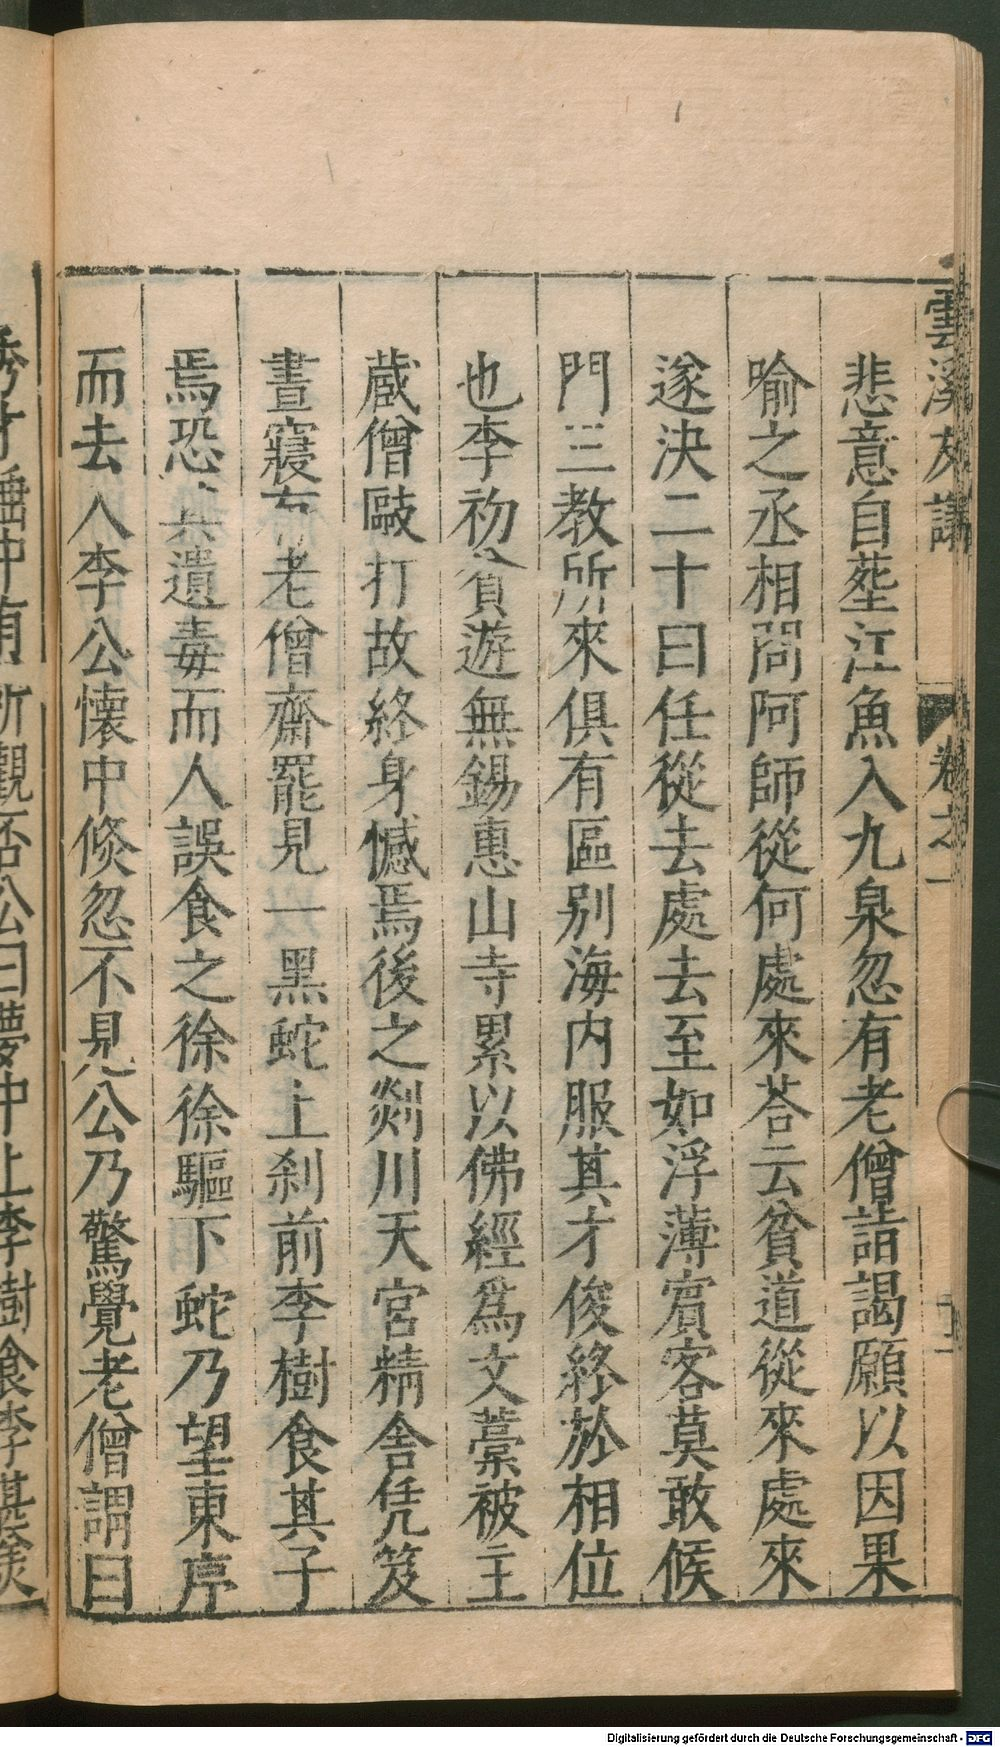 雲溪友議
卷之一
悲意自塟江魚入九泉忽有老僧詣謁願以因果
喻之丞相問阿師從何處來荅云貧道從來處來
遂決二十曰任從去處去至如浮薄賓客莫敢候
門三教所來俱有區别海内服其才俊終於相位
也李初貧遊無錫惠山寺累以佛經爲文藁被主
蔵僧毆打故終身憾焉後之剡川天宮精舍凭笈
晝寢有老僧齋罷見一黑蛇上刹前李樹食其子
焉恐其遺毒而人誤食之徐徐驅下蛇乃望東序
而去入李公懷中倐忽不見公乃驚覺老僧謂曰
秀才睡中有所觀否公曰夢中上李樹食李甚
Digitalisierung gefördert durch die Deutsche Forschungsgemeinschaft - DFG